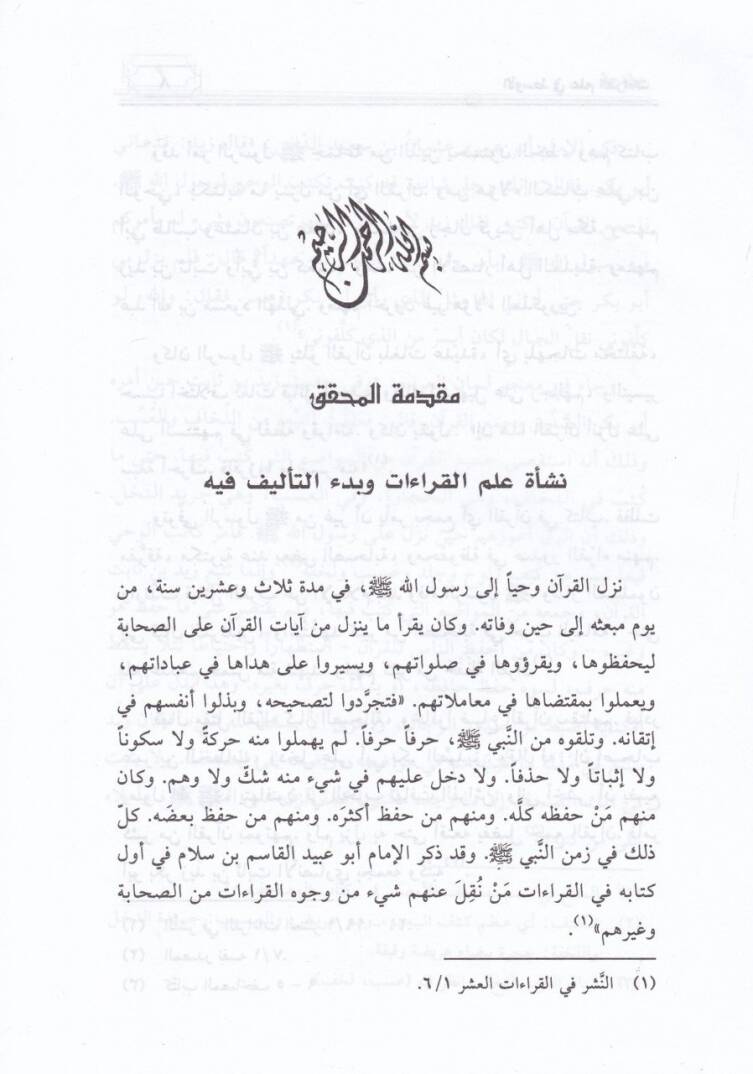 بسم الله الرحمن الرحيم
مقدمة المحقق
نشأة علم القراءات وبدء التأليف فيه
نزل القرآن وحياً إلى رسول الله ﷺ، في مدة ثلاث وعشرين سنة، من
يوم مبعثه إلى حين وفاته. وكان يقرأ ما ينزل من آيات القرآن على الصحابة
ليحفظوها، ويقرؤوها في صلواتهم، ويسيروا على هداها في عباداتهم،
ويعملوا بمقتضاها في معاملاتهم. «فتجرَّدوا لتصحيحه، وبذلوا أنفسهم في
إتقانه. وتلقوه من النَّبي ﷺ، حرفاً حرفاً. لم يهملوا منه حركةً ولا سكوناً
ولا إثباتاً ولا حذفاً. ولا دخل عليهم في شيء منه شكّ ولا وهم. وكان
منهم مَنْ حفظه كلَّه. ومنهم من حفظ أكثرَه. ومنهم من حفظ بعضَه. كلّ
ذلك في زمن النَّبي ﷺ. وقد ذكر الإمام أبو عبيد القاسم بن سلام في أول
كتابه في القراءات مَنْ نُقِلَ عنهم شيء من وجوه القراءات من الصحابة
وغيرهم»(١).
(١) النَّشر في القراءات العشر ٦/١.